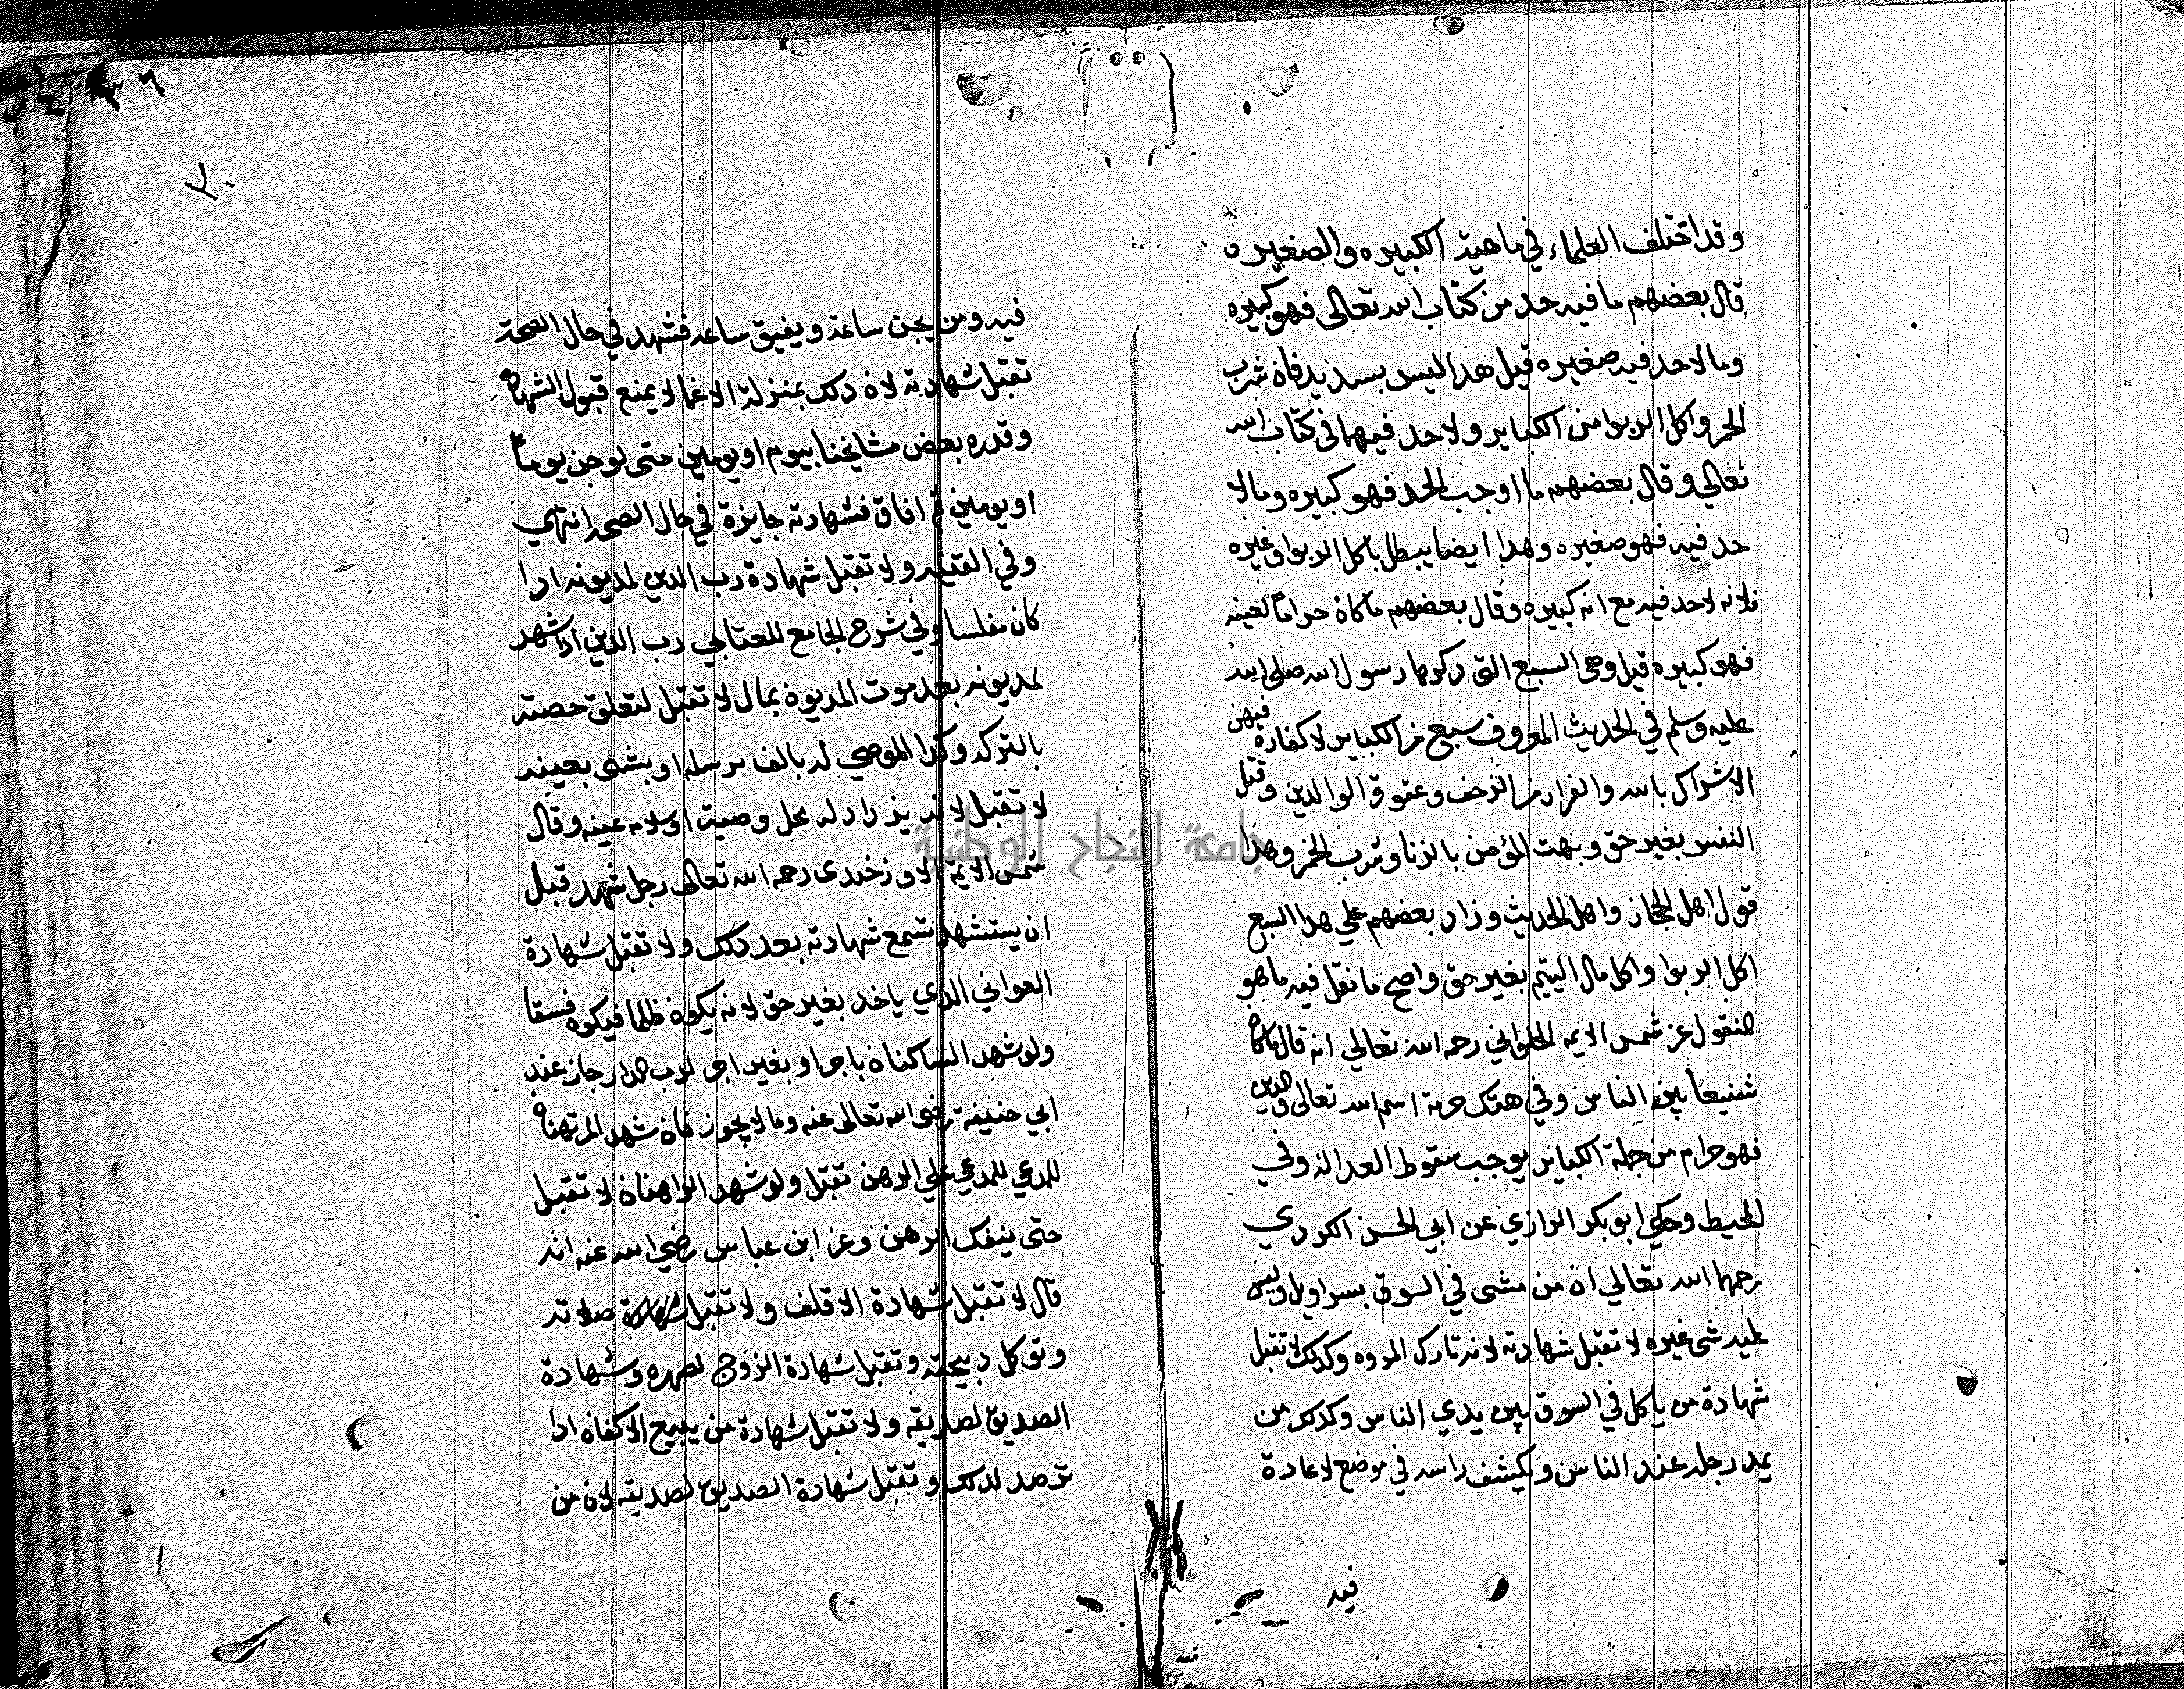 وقد اختلف العلماء في ماهية الكبيره والصغيره
قال بعضهم ما فيه حد من كتاب الله تعالى فهو كبيره
وما لا حد فيه صغيره قيل هذا ليس بسديد فان شرب
الخمر واكل الربوا من الكباير ولا حد فيهما في كتاب الله
تعالي وقال بعضهم ما اوجب الحد فهو كبيره وما لا
حد فيه فهو صغيره وهذا ايضا يبطل باكل الربوا وغيره
فلانه لا حد فيه مع انه كبيره وقال بعضهم ما كان حراما لعينه
فهو كبيره قيل وهى السبع التى ذكرها رسول الله صلى الله
عليه وسلم في الحديث المعروف سبع من الكباير لا كفارة فيهن
الاشراك بالله والفرار من الزحف وعقوق الوالدين وقتل
النفس بغير حق وبهت المؤمن بالزنا وشرب الخمر وهذا
قول اهل الحجاز واهل الحديث وزاد بعضهم علي هذا السبع
اكل الربوا واكل مال اليتيم بغير حق واصح ما نقل فيه ما هو
المنقول عن شمس الايمه الحلواني رحمه الله تعالي انه قال ما كان
شنيعا بين الناس وفي هتك حرمة اسم الله تعالى والدين
فهو حرام من جملة الكباير يوجب سقوط العدالة وفي
المحيط وحكي ابو بكر الرازي عن ابي الحسن الكردي
رحمهما الله تعالي ان من مشى في السوق بسراويل وليس
عليه شى غيره لا تقبل شهادته لانه تارك المروه وكذلك لا تقبل
شهادة من ياكل في السوق بين يدي الناس وكذلك من
يمد رجله عند الناس ويكشف راسه في موضع لا عادة
فيه
٢٠
فيه ومن يجن ساعة ويفيق ساعه فشهد في حال الصحة
تقبل شهادته لان ذلك بمنزلة الاغما لا يمنع قبول الشهادة
وقدره بعض مشايخنا بيوم او يومين حتى لو جن يوما
او يومين ثم افاق فشهادته جايزة في حال الصحه انتهي
وفي القنيه ولا تقبل شهادة رب الدين لمديونه اذا
كان مفلسا وفي شرح الجامع للعتابي رب الدين اذا شهد
لمديونه بعد موت المديون بمال لا تقبل لتعلق حصته
بالتركه وكذا الموصي له بالف مرسله او بشى بعينه
لا تقبل لانه يزداد له محل وصيته او سلامه عينه وقال
شمس الايمه الاوزخندى رحمه الله تعالى رجل شهد قبل
ان يستشهد تسمع شهادته بعد ذلك ولا تقبل شهادة
العواني الذي ياخذ بغير حق لانه يكون ظلما فيكون فسقا
ولو شهد الساكنان باجر او بغير اجر لرب الدار جاز عند
ابي حنيفة رضى الله تعالى عنه وما لا يجوز فان شهد المرتهنان
للمدعي علي الرهن تقبل ولو شهد الراهنان لا تقبل
حتى ينفك الرهن وعن ابن عباس رضي الله عنه انه
قال لا تقبل شهادة الاقلف ولا تقبل صلاته
وتوكل ذبيحته وتقبل شهادة الزوج لصهره وشهادة
الصديق لصديقه ولا تقبل شهادة من يبيع الاكفان اذا
ترصد لذلك وتقبل شهادة الصديق لصديقه لان من
جامعة النجاح الوطنية